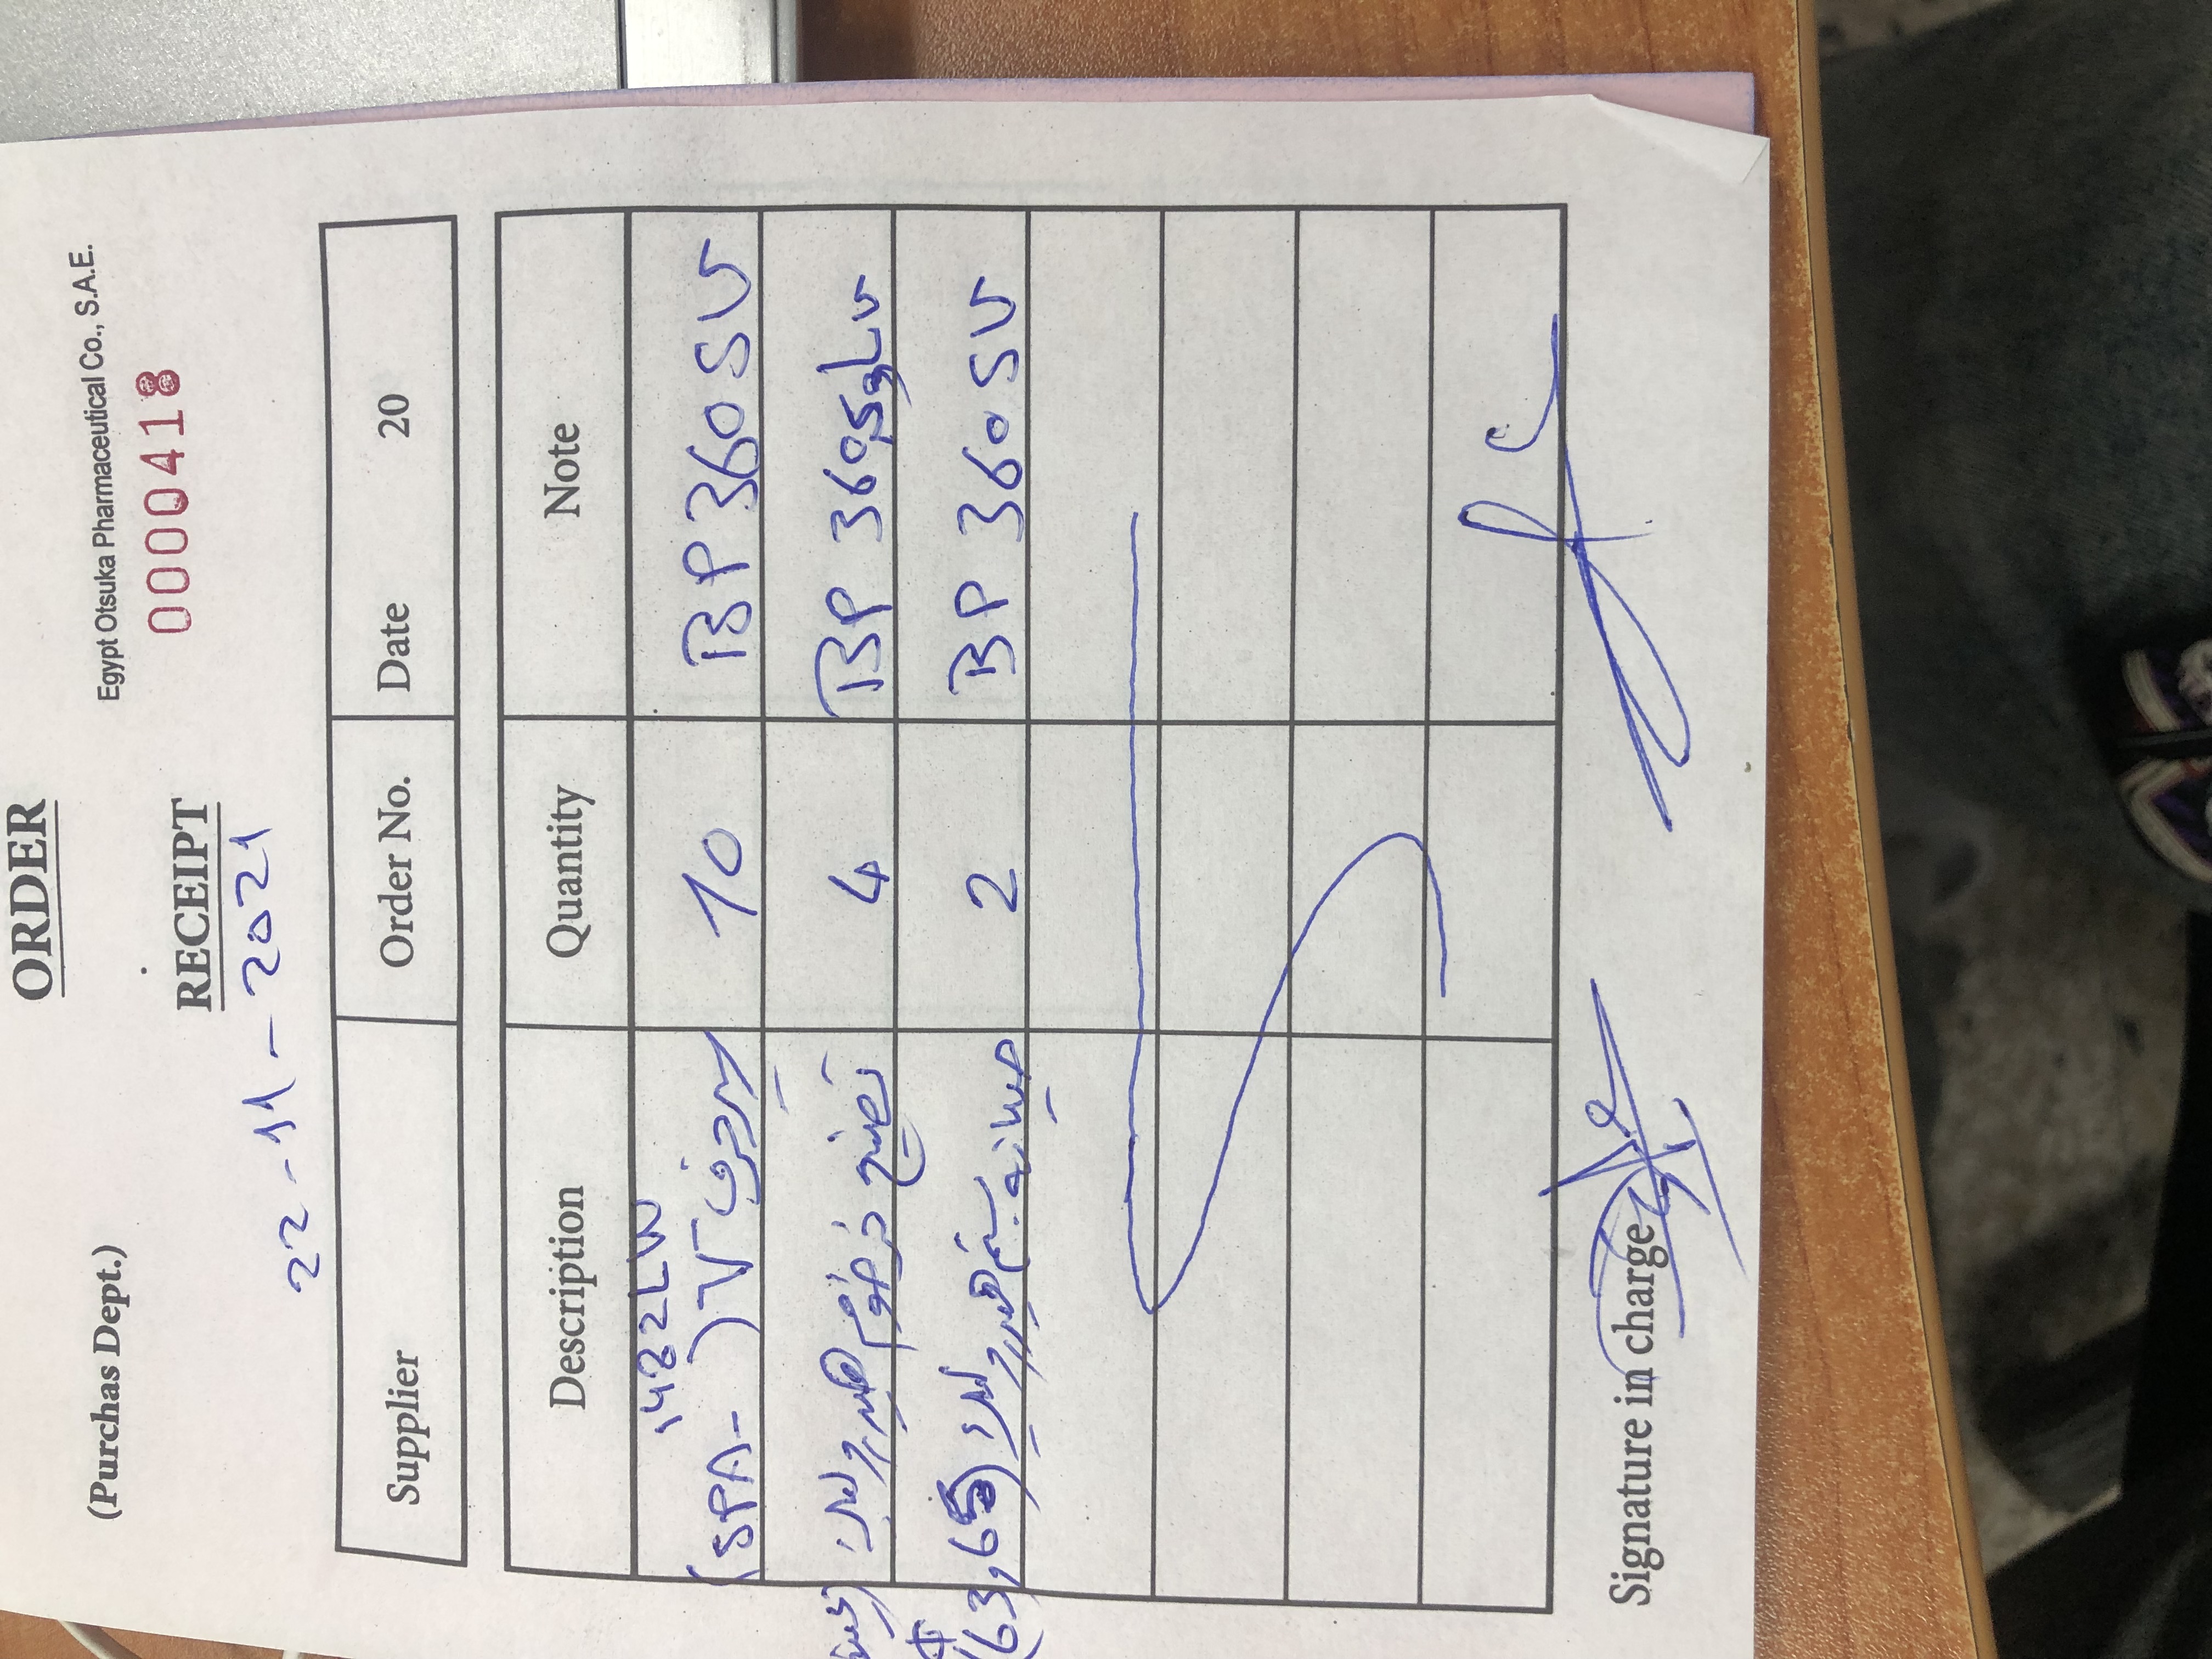 ORDER
(Purchas Dept.)
Egypt Otsuka Pharmaceutical Co., S.A.E.
0000418
RECEIPT
22-11-2021
Supplier Order No. Date 20
Description Quantity Note
1482LW
سير حرف V (SPA- ) 10 BP 360 SV
تصنيع خرطوم هيدروليك 4 BP 360
صيانه بستم هيدروليك (63,65) 2 BP 360 SV
Signature in charge